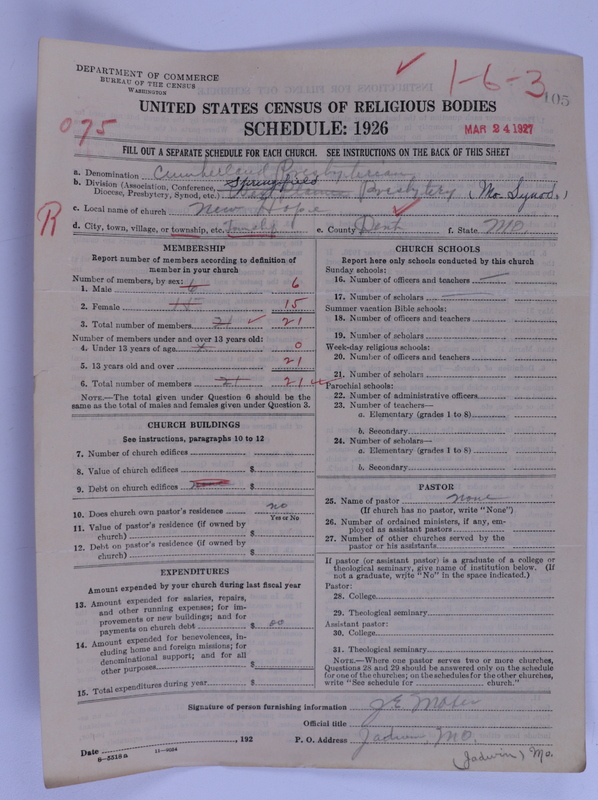 DEPARTMENT OF COMMERCE
BUREAU OF THE CENSUS
WASHINGTON
1-6-3
105
UNITED STATES CENSUS OF RELIGIOUS BODIES
SCHEDULE: 1926
MAR 24 1927
075
FILL OUT A SEPARATE SCHEDULE FOR EACH CHURCH. SEE INSTRUCTIONS ON THE BACK OF THIS SHEET
a. Denomination Cumberland Presbyterian
b. Division (Association, Conference, Diocese, Presbytery, Synod, etc.) Springfield Presbytery (Mo. Synod)
c. Local name of church New Hope
R
d. City, town, village, or township, etc. Township e. County Dent f. State MO
MEMBERSHIP
Report number of members according to definition of
member in your church
Number of members, by sex:
1. Male 6 6
2. Female 15 15
3. Total number of members 21 21
Number of members under and over 13 years old:
4. Under 13 years of age 0
5. 13 years old and over 21
6. Total number of members 21 21
NOTE.—The total given under Question 6 should be
same as the total of males and females given under Question 3.
CHURCH BUILDINGS
See instructions, paragraphs 10 to 12
7. Number of church edifices
8. Value of church edifices $
9. Debt on church edifices $
10. Does church own pastor's residence no
Yes or No
11. Value of pastor's residence (if owned by
church) $
12. Debt on pastor's residence (if owned by
church) $
EXPENDITURES
Amount expended by your church during last fiscal year
13. Amount expended for salaries, repairs,
and other running expenses; for im-
provements or new buildings; and for
payments on church debt $ 00
14. Amount expended for benevolences, in-
cluding home and foreign missions; for
denominational support; and for all
other purposes $
15. Total expenditures during year $
CHURCH SCHOOLS
Report here only schools conducted by this church
Sunday schools:
16. Number of officers and teachers
17. Number of scholars
Summer vacation Bible schools:
18. Number of officers and teachers
19. Number of scholars
Week-day religious schools:
20. Number of officers and teachers
21. Number of scholars
Parochial schools:
22. Number of administrative officers
23. Number of teachers—
a. Elementary (grades 1 to 8)
b. Secondary
24. Number of scholars—
a. Elementary (grades 1 to 8)
b. Secondary
PASTOR
25. Name of pastor none
(If church has no pastor, write "None")
26. Number of ordained ministers, if any, em-
ployed as assistant pastors
27. Number of other churches served by the
pastor or his assistants
If pastor (or assistant pastor) is a graduate of a college or
theological seminary, give name of institution below. (If
not a graduate, write "No" in the space indicated.)
Pastor:
28. College
29. Theological seminary
Assistant pastor:
30. College
31. Theological seminary
NOTE.—Where one pastor serves two or more churches,
Questions 28 and 29 should be answered only on the schedule
for one of the churches; on the schedules for the other churches,
write "See schedule for church."
Signature of person furnishing information J E Moser
Official title
Date , 192 P. O. Address Jadwin, MO.
8-5518a 11-9024
(Jadwin) Mo.